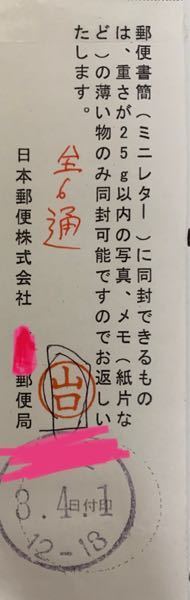 郵便書簡(ミニレター)に同封できるもの
は、重さが25g以内の写真、メモ(紙片な
ど)の薄い物のみ同封可能ですのでお返しい
たします。
全6通
日本郵便株式会社
郵便局
山口
3.4.1
日付印
12-18